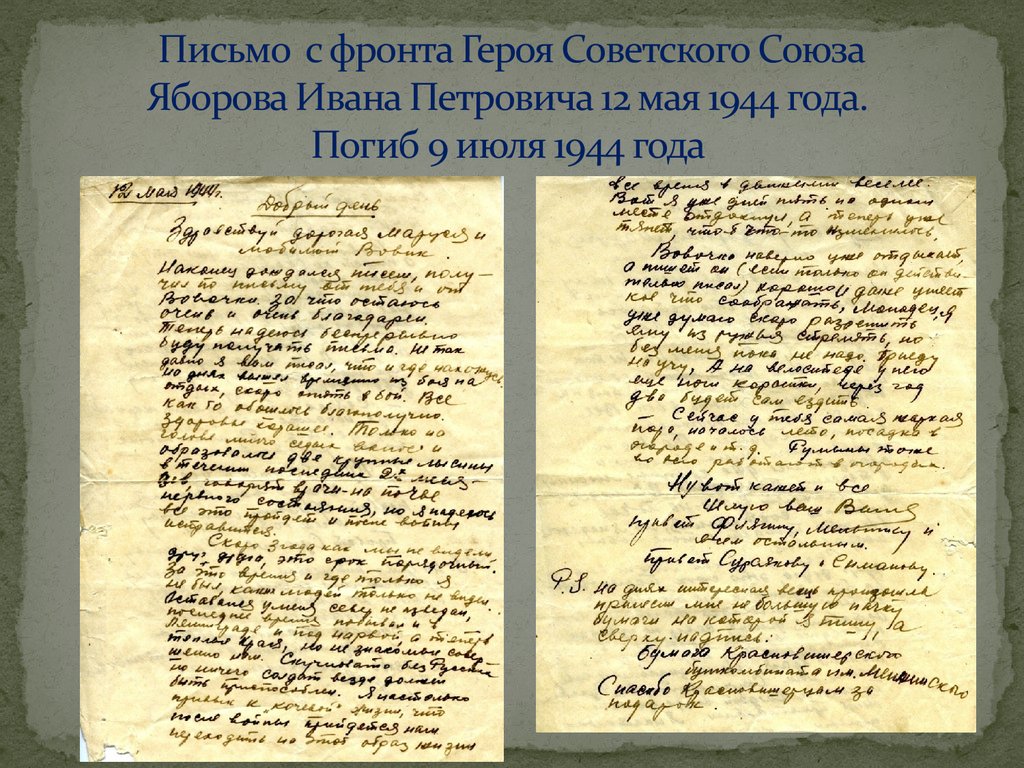 Письмо с фронта Героя Советского Союза
Яборова Ивана Петровича 12 мая 1944 года.
Погиб 9 июля 1944 года
12 мая 1944г.
Добрый день
Здравствуй дорогая Маруся и
любимый Вовик.
Наконец дождался писем, полу-
чил по письму от тебя и от
Вовочки. За что остаюсь
очень и очень благодарен.
Теперь надеюсь беспрерывно
буду получать письма. Не так
давно я вам писал, что и где нахожусь,
на днях вышел временно из боя на
отдых, скоро опять в бой. Все
как то обошлось благополучно.
Здоровье хорошее. Только на
голове много седых волос и
образовалось две крупные лысины
в течении последних 2х меся-
цев, говорят врачи - на почве
нервного состояния, но я надеюсь
все это пройдет и после войны
исправится.
Скоро 3 года как мы не видели
друг друга, это срок порядочный.
За это время и где только я
не был, каких людей только не видел.
Оставался у меня север не изведан,
последнее время побывал и в
Ленинграде и под Нарвой, а теперь
теплые края, но не знакомые сове-
шенно нам. Скучновато без Русских
но ничего солдат везде должен
быть приспособлен. Я настолько
привык к кочевой жизни, что
после войны прийдется нам
переходить на этот образ жизни
все время в движении веселее.
Вот я уже дней пять на одном
месте отдохнул, а теперь уже
тянет, чтоб что-то изменилось.
Вовочка наверно уже отдыхает,
а пишет он (если только он действи-
тельно писал) хорошо и даже умеет
кое что соображать, Молодец, я
уже думаю скоро разрешить
ему из ружья стрелять, но
без меня пока не надо. Приеду
научу, А на велосипеде у него
еще ноги коротки, через год
два будет сам ездить.
Сейчас у тебя самая жаркая
пора, началось лето, посадка в
огороде и т.д. Румыны тоже
во всю работают в огородах.
Ну вот кажет и все
Целую ваш Ваня
привет Филягину, и
всем остальным.
привет Сурякову и Симанову.
P.S. На днях интересная вещь произошла
принесли мне не большую пачку
бумаги на которой я пишу, а
сверху надпись:
бумага Красновишерского
бумкомбината им. Менжинского
Спасибо Красновишерцам за
подарок.